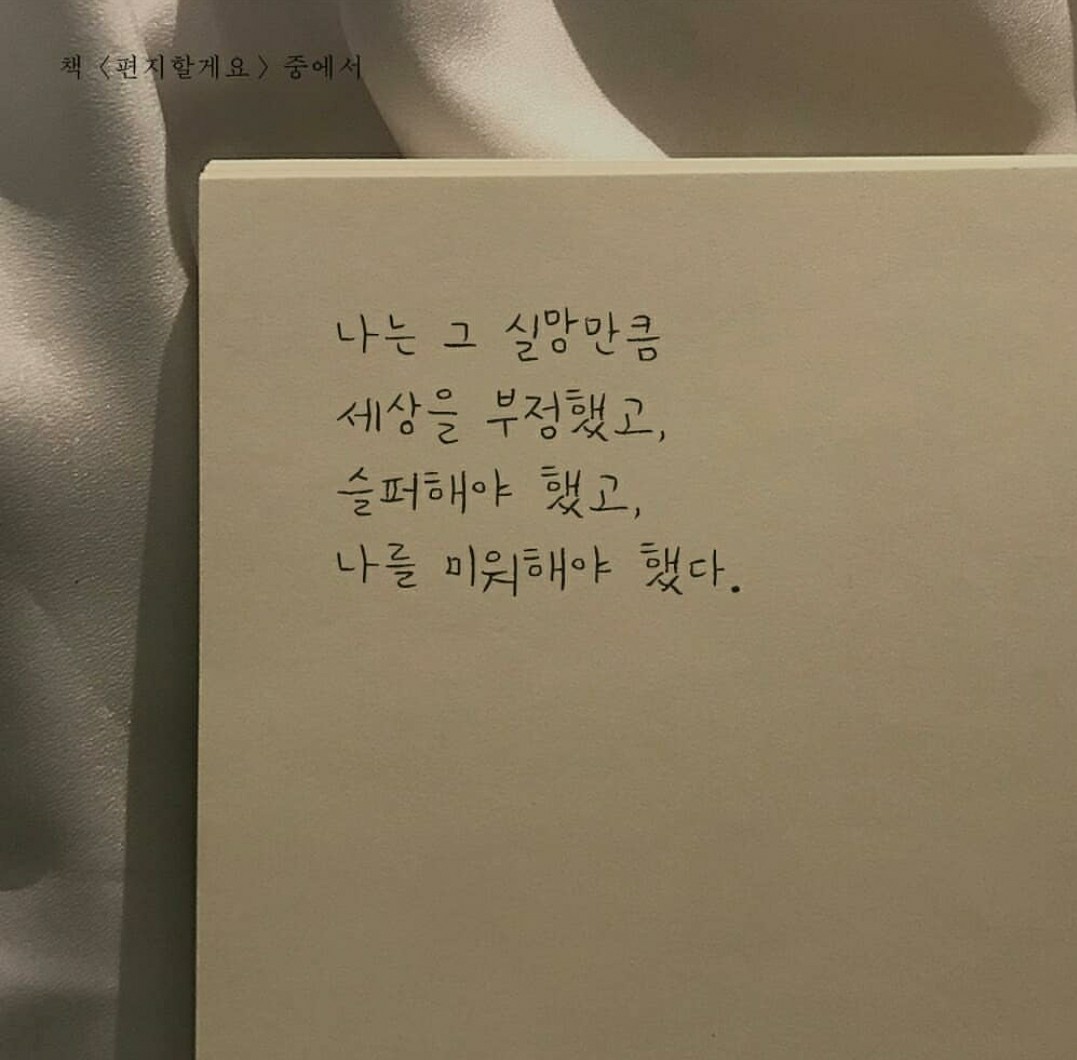 책 〈편지할게요〉 중에서
나는 그 실망만큼
세상을 부정했고,
슬퍼해야 했고,
나를 미워해야 했다.